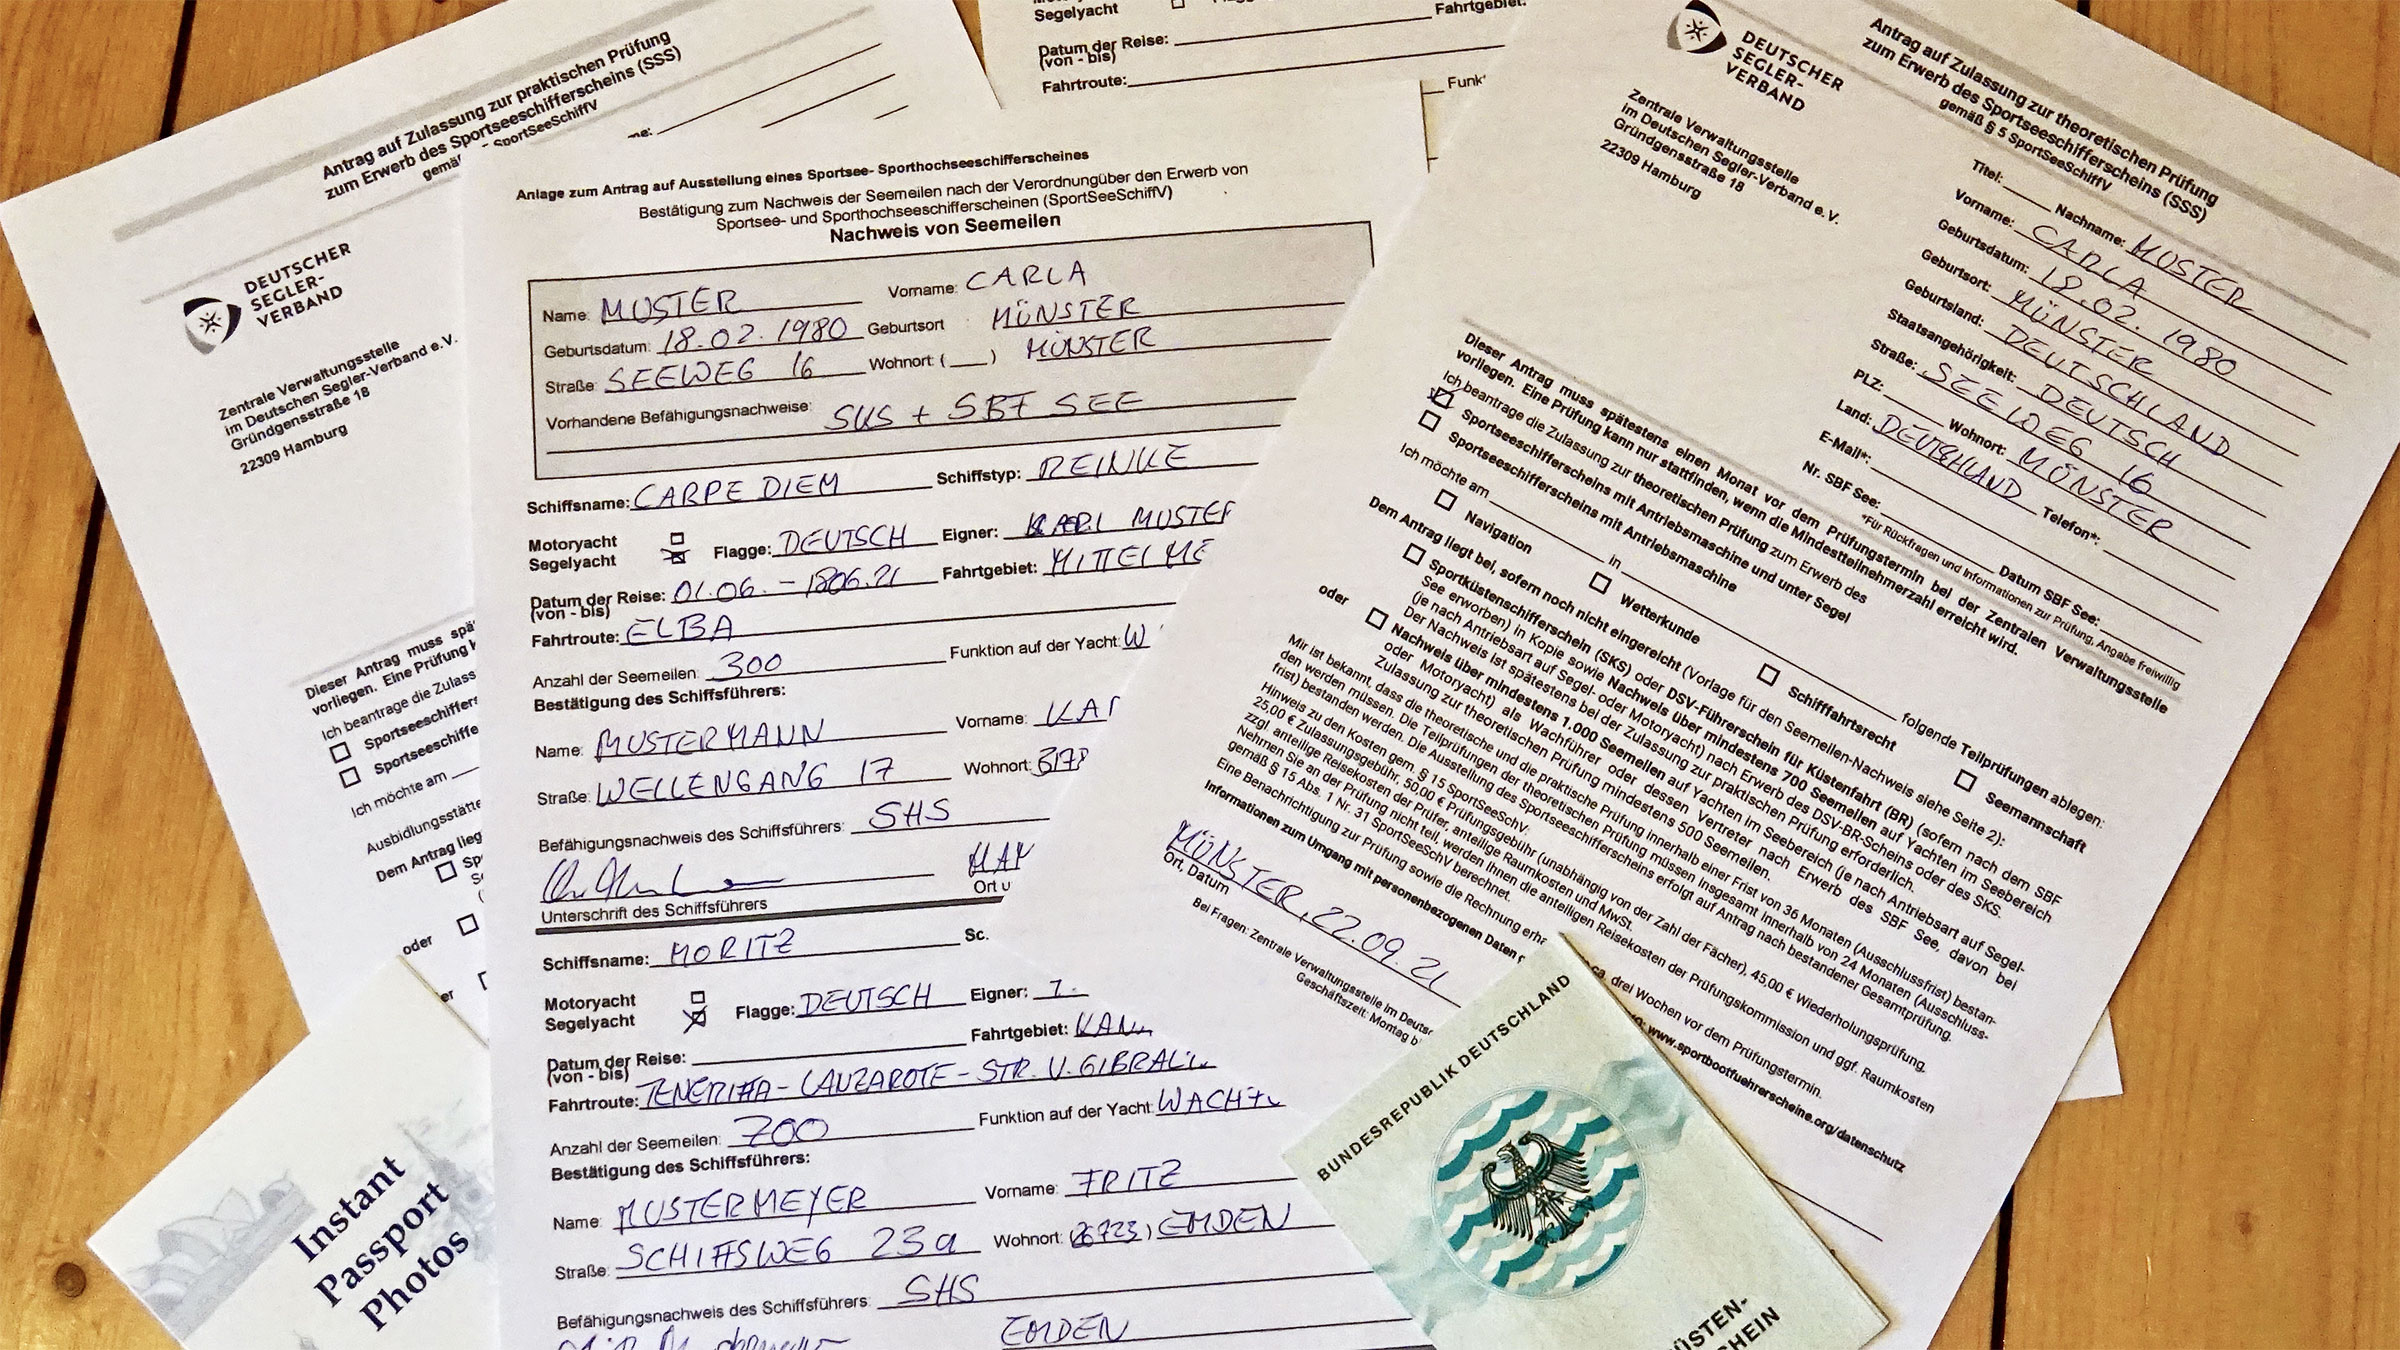 Antrag auf Zulassung zur praktischen Prüfung
zum Erwerb des Sportseeschifferscheins (SSS)
SportSeeSchiffV
DEUTSCHER
SEGLER-
VERBAND
Zentrale Verwaltungsstelle
im Deutschen Segler-Verband e.V.
Gründgensstraße 18
22309 Hamburg
Dieser Antrag muss
vorliegen. Eine Prüfung
Ich beantrage die
Ich möchte am
Dem Antrag
oder
Segelyacht
Datum der Reise:
(von - bis)
Fahrtroute:
Fahrtgebiet:
Anlage zum Antrag auf Ausstellung eines Sportsee- Sporthochseeschifferscheines
Bestätigung zum Nachweis der Seemeilen nach der Verordnungüber den Erwerb von
Sportsee- und Sporthochseeschifferscheinen (SportSeeSchiffV)
Nachweis von Seemeilen
Name: MUSTER Vorname: CARLA
Geburtsdatum: 18.02.1980 Geburtsort MÜNSTER
Straße: SEEWEG 16 Wohnort ( ) MÜNSTER
Vorhandene Befähigungsnachweise: SKS + SBF SEE
Schiffsname: CARPE DIEM Schiffstyp: REINKE
Motoryacht
Segelyacht Flagge: DEUTSCH Eigner: KARL
Datum der Reise: 01.06. - 1806.21 Fahrtgebiet:
(von - bis)
Fahrtroute: ELBA
Anzahl der Seemeilen: 300 Funktion auf der Yacht: W
Bestätigung des Schiffsführers:
Name: MUSTERMANN Vorname:
Straße: WELLENGANG 17 Wohnort:
Befähigungsnachweis des Schiffsführers: SHS
Ort
Unterschrift des Schiffsführers
Schiffsname: MORITZ
Motoryacht
Segelyacht Flagge: DEUTSCH Eigner:
Datum der Reise: Fahrtgebiet:
(von - bis)
Fahrtroute: TENERIFFA - LANZAROTE - STR. V.
Anzahl der Seemeilen: 700 Funktion auf der Yacht:
Bestätigung des Schiffsführers:
Name: MUSTERMEYER Vorname: FRITZ
Straße: SCHIFFSWEG 23a Wohnort: (26723) EMDEN
Befähigungsnachweis des Schiffsführers: SHS
EMDEN
DEUTSCHER
SEGLER-
VERBAND
Antrag auf Zulassung zur theoretischen Prüfung
zum Erwerb des Sportseeschifferscheins (SSS)
gemäß § 5 SportSeeSchiffV
Zentrale Verwaltungsstelle
im Deutschen Segler-Verband e.V.
Gründgensstraße 18
22309 Hamburg
Titel: Nachname: MUSTER
Vorname: CARLA
Geburtsdatum: 18.02.1980
Geburtsort: MÜNSTER
Geburtsland: DEUTSCHLAND
Staatsangehörigkeit: DEUTSCH
Straße: SEEWEG 16
PLZ: Wohnort: MÜNSTER
Land: DEUTSHLAND Telefon*:
E-Mail*:
Nr. SBF See: Datum SBF See:
*Für Rückfragen und Informationen zur Prüfung, Angabe freiwillig
Dieser Antrag muss spätestens einen Monat vor dem Prüfungstermin bei der Zentralen Verwaltungsstelle
vorliegen. Eine Prüfung kann nur stattfinden, wenn die Mindestteilnehmerzahl erreicht wird.
Ich beantrage die Zulassung zur theoretischen Prüfung zum Erwerb des
Sportseeschifferscheins mit Antriebsmaschine und unter Segel
Sportseeschifferscheins mit Antriebsmaschine
Ich möchte am in folgende Teilprüfungen ablegen:
Navigation Wetterkunde Schifffahrtsrecht Seemannschaft
Dem Antrag liegt bei, sofern noch nicht eingereicht (Vorlage für den Seemeilen-Nachweis siehe Seite 2):
Sportküstenschifferschein (SKS) oder DSV-Führerschein für Küstenfahrt (BR) (sofern nach dem SBF
See erworben) in Kopie sowie Nachweis über mindestens 700 Seemeilen auf Yachten im Seebereich
(je nach Antriebsart auf Segel- oder Motoryacht) nach Erwerb des DSV-BR-Scheins oder des SKS.
Der Nachweis ist spätestens bei der Zulassung zur praktischen Prüfung erforderlich.
oder Nachweis über mindestens 1.000 Seemeilen auf Yachten im Seebereich (je nach Antriebsart auf Segel-
oder Motoryacht) als Wachführer oder dessen Vertreter nach Erwerb des SBF See, davon bei
Zulassung zur theoretischen Prüfung mindestens 500 Seemeilen.
Mir ist bekannt, dass die theoretische und die praktische Prüfung innerhalb einer Frist von 36 Monaten (Ausschlussfrist) bestan-
den werden müssen. Die Teilprüfungen der theoretischen Prüfung müssen insgesamt innerhalb von 24 Monaten (Ausschluss-
frist) bestanden werden. Die Ausstellung des Sportseeschifferscheins erfolgt auf Antrag nach bestandener Gesamtprüfung.
Hinweis zu den Kosten gem. § 15 SportSeeSchV:
25,00 € Zulassungsgebühr, 50,00 € Prüfungsgebühr (unabhängig von der Zahl der Fächer), 45,00 € Wiederholungsprüfung,
zzgl. anteilige Reisekosten der Prüfer, anteilige Raumkosten und MwSt.
Nehmen Sie an der Prüfung nicht teil, werden Ihnen die anteiligen Reisekosten der Prüfungskommission und ggf. Raumkosten
gemäß § 15 Abs. 1 Nr. 31 SportSeeSchV berechnet.
Eine Benachrichtigung zur Prüfung sowie die Rechnung ca. drei Wochen vor dem Prüfungstermin.
Informationen zum Umgang mit personenbezogenen Daten www.sportbootfuehrerscheine.org/datenschutz
MÜNSTER, 22.09.21
Ort, Datum
Bei Fragen: Zentrale Verwaltungsstelle im
Geschäftszeit: Montag
BUNDESREPUBLIK DEUTSCHLAND
Instant
Passport
Photos